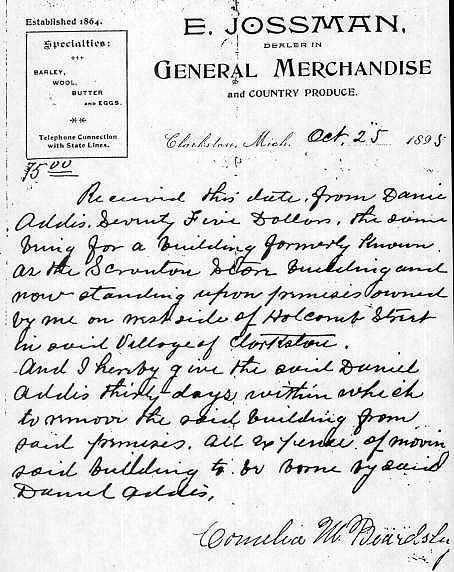 Established 1864.
Specialties:
BARLEY,
WOOL,
BUTTER
AND EGGS.
Telephone Connection
with State Lines.
E. JOSSMAN,
DEALER IN
GENERAL MERCHANDISE
and COUNTRY PRODUCE.
Clarkston, Mich. Oct. 25 1895
75 00
Received this date, from Danie
Addis. Seventy Five Dollars, the same
being for a building formerly known
as the Scranton Store building and
now standing upon premises owned
by me on west side of Holcomb Street
in said Village of Clarkston.
And I hereby give the said Daniel
Addis thirty days, within which
to remove the said building from
said premises. All expense of movin
said building to be borne by said
Daniel Addis.
Cornelia M. Beardsley